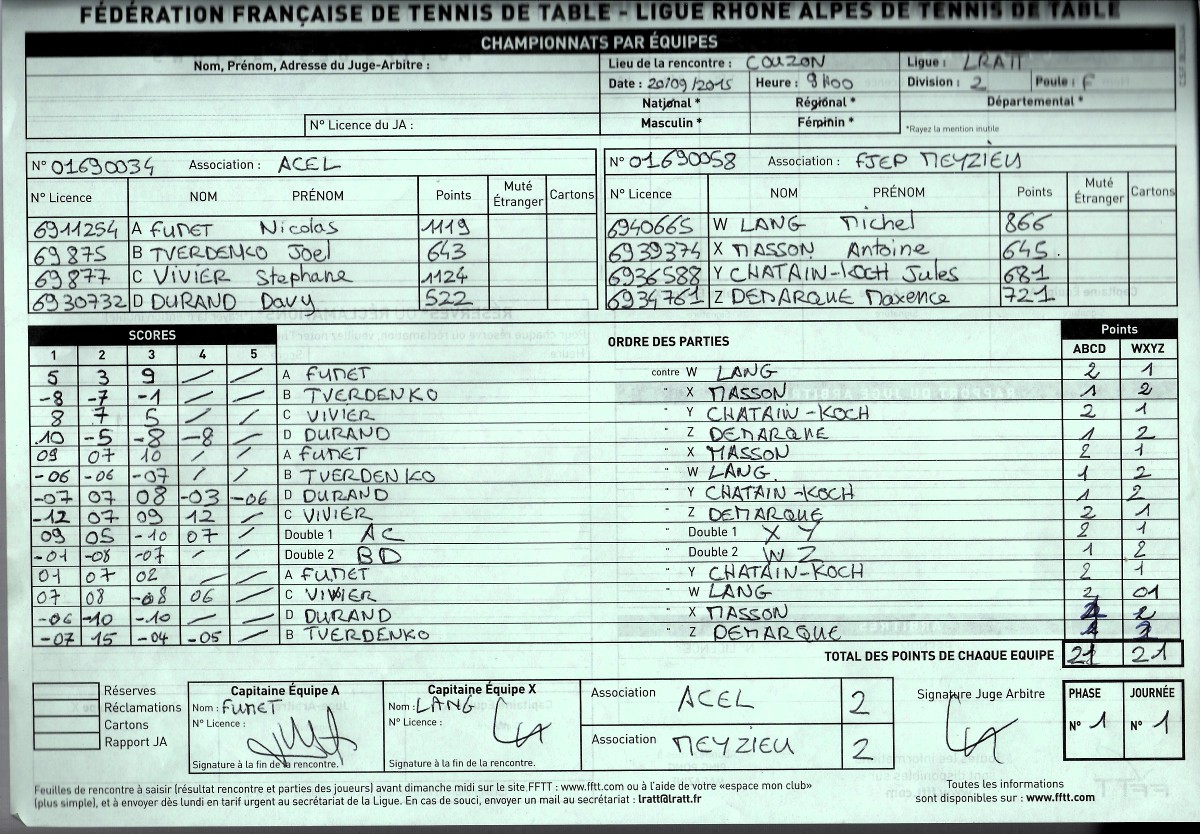 FÉDÉRATION FRANÇAISE DE TENNIS DE TABLE - LIGUE RHONE ALPES DE TENNIS DE TABLE
CHAMPIONNATS PAR ÉQUIPES
Nom, Prénom, Adresse du Juge-Arbitre :
N° Licence du JA :
Lieu de la rencontre : COUZON
Ligue : LRATT
Date : 20/09/2015 Heure : 9H00
Division : 2 Poule : F
National * Régional * Départemental *
Masculin * Féminin *
*Rayez la mention inutile
N° 01690034 Association : ACEL
N° 01690058 Association : FJEP MEYZIEU
N° Licence NOM PRÉNOM Points Muté Étranger Cartons
N° Licence NOM PRÉNOM Points Muté Étranger Cartons
6911254 A FUMET Nicolas 1119
6940665 W LANG Michel 866
69875 B TVERDENKO Joel 643
6939374 X MASSON Antoine 645
69877 C VIVIER Stephane 1124
6936588 Y CHATAIN-KOCH Jules 681
6930732 D DURAND Davy 522
6934761 Z DEMARQUE Maxence 721
SCORES ORDRE DES PARTIES Points
1 2 3 4 5 ABCD WXYZ
5 3 9 / / A FUMET contre W LANG 2 1
-8 -7 -1 / / B TVERDENKO " X MASSON 1 2
8 7 5 / / C VIVIER " Y CHATAIN-KOCH 2 1
10 -5 -8 -8 / D DURAND " Z DEMARQUE 1 2
09 07 10 / / A FUMET " X MASSON 2 1
-06 -06 -07 / / B TVERDENKO " W LANG 1 2
-07 07 08 -03 -06 D DURAND " Y CHATAIN-KOCH 1 2
-12 07 09 12 / C VIVIER " Z DEMARQUE 2 1
09 05 -10 07 / Double 1 AC " Double 1 X Y 2 1
-01 -08 -07 / / Double 2 BD " Double 2 W Z 1 2
01 07 02 / / A FUMET " Y CHATAIN-KOCH 2 1
07 08 -08 06 / C VIVIER " W LANG 2 01
-06 -10 -10 / / D DURAND " X MASSON 2
-07 15 -04 -05 / B TVERDENKO " Z DEMARQUE
TOTAL DES POINTS DE CHAQUE EQUIPE 21 21
Réserves
Réclamations
Cartons
Rapport JA
Capitaine Équipe A
Nom : FUMET
N° Licence :
Signature à la fin de la rencontre.
Capitaine Équipe X
Nom : LANG
N° Licence :
Signature à la fin de la rencontre.
Association ACEL 2
Association MEYZIEU 2
Signature Juge Arbitre
PHASE N° 1
JOURNÉE N° 1
Feuilles de rencontre à saisir (résultat rencontre et parties des joueurs) avant dimanche midi sur le site FFTT : www.fftt.com ou à l'aide de votre «espace mon club»
(plus simple), et à envoyer dès lundi en tarif urgent au secrétariat de la Ligue. En cas de souci, envoyer un mail au secrétariat : lratt@lratt.fr
Toutes les informations
sont disponibles sur : www.fftt.com